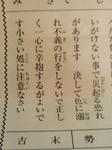 いがけない事で災起る恐れ
があります 決して色に溺
れ不義の行をしないで正し
く一心に辛抱するがよいで
す小さい処に注意なさい
吉 末 勢